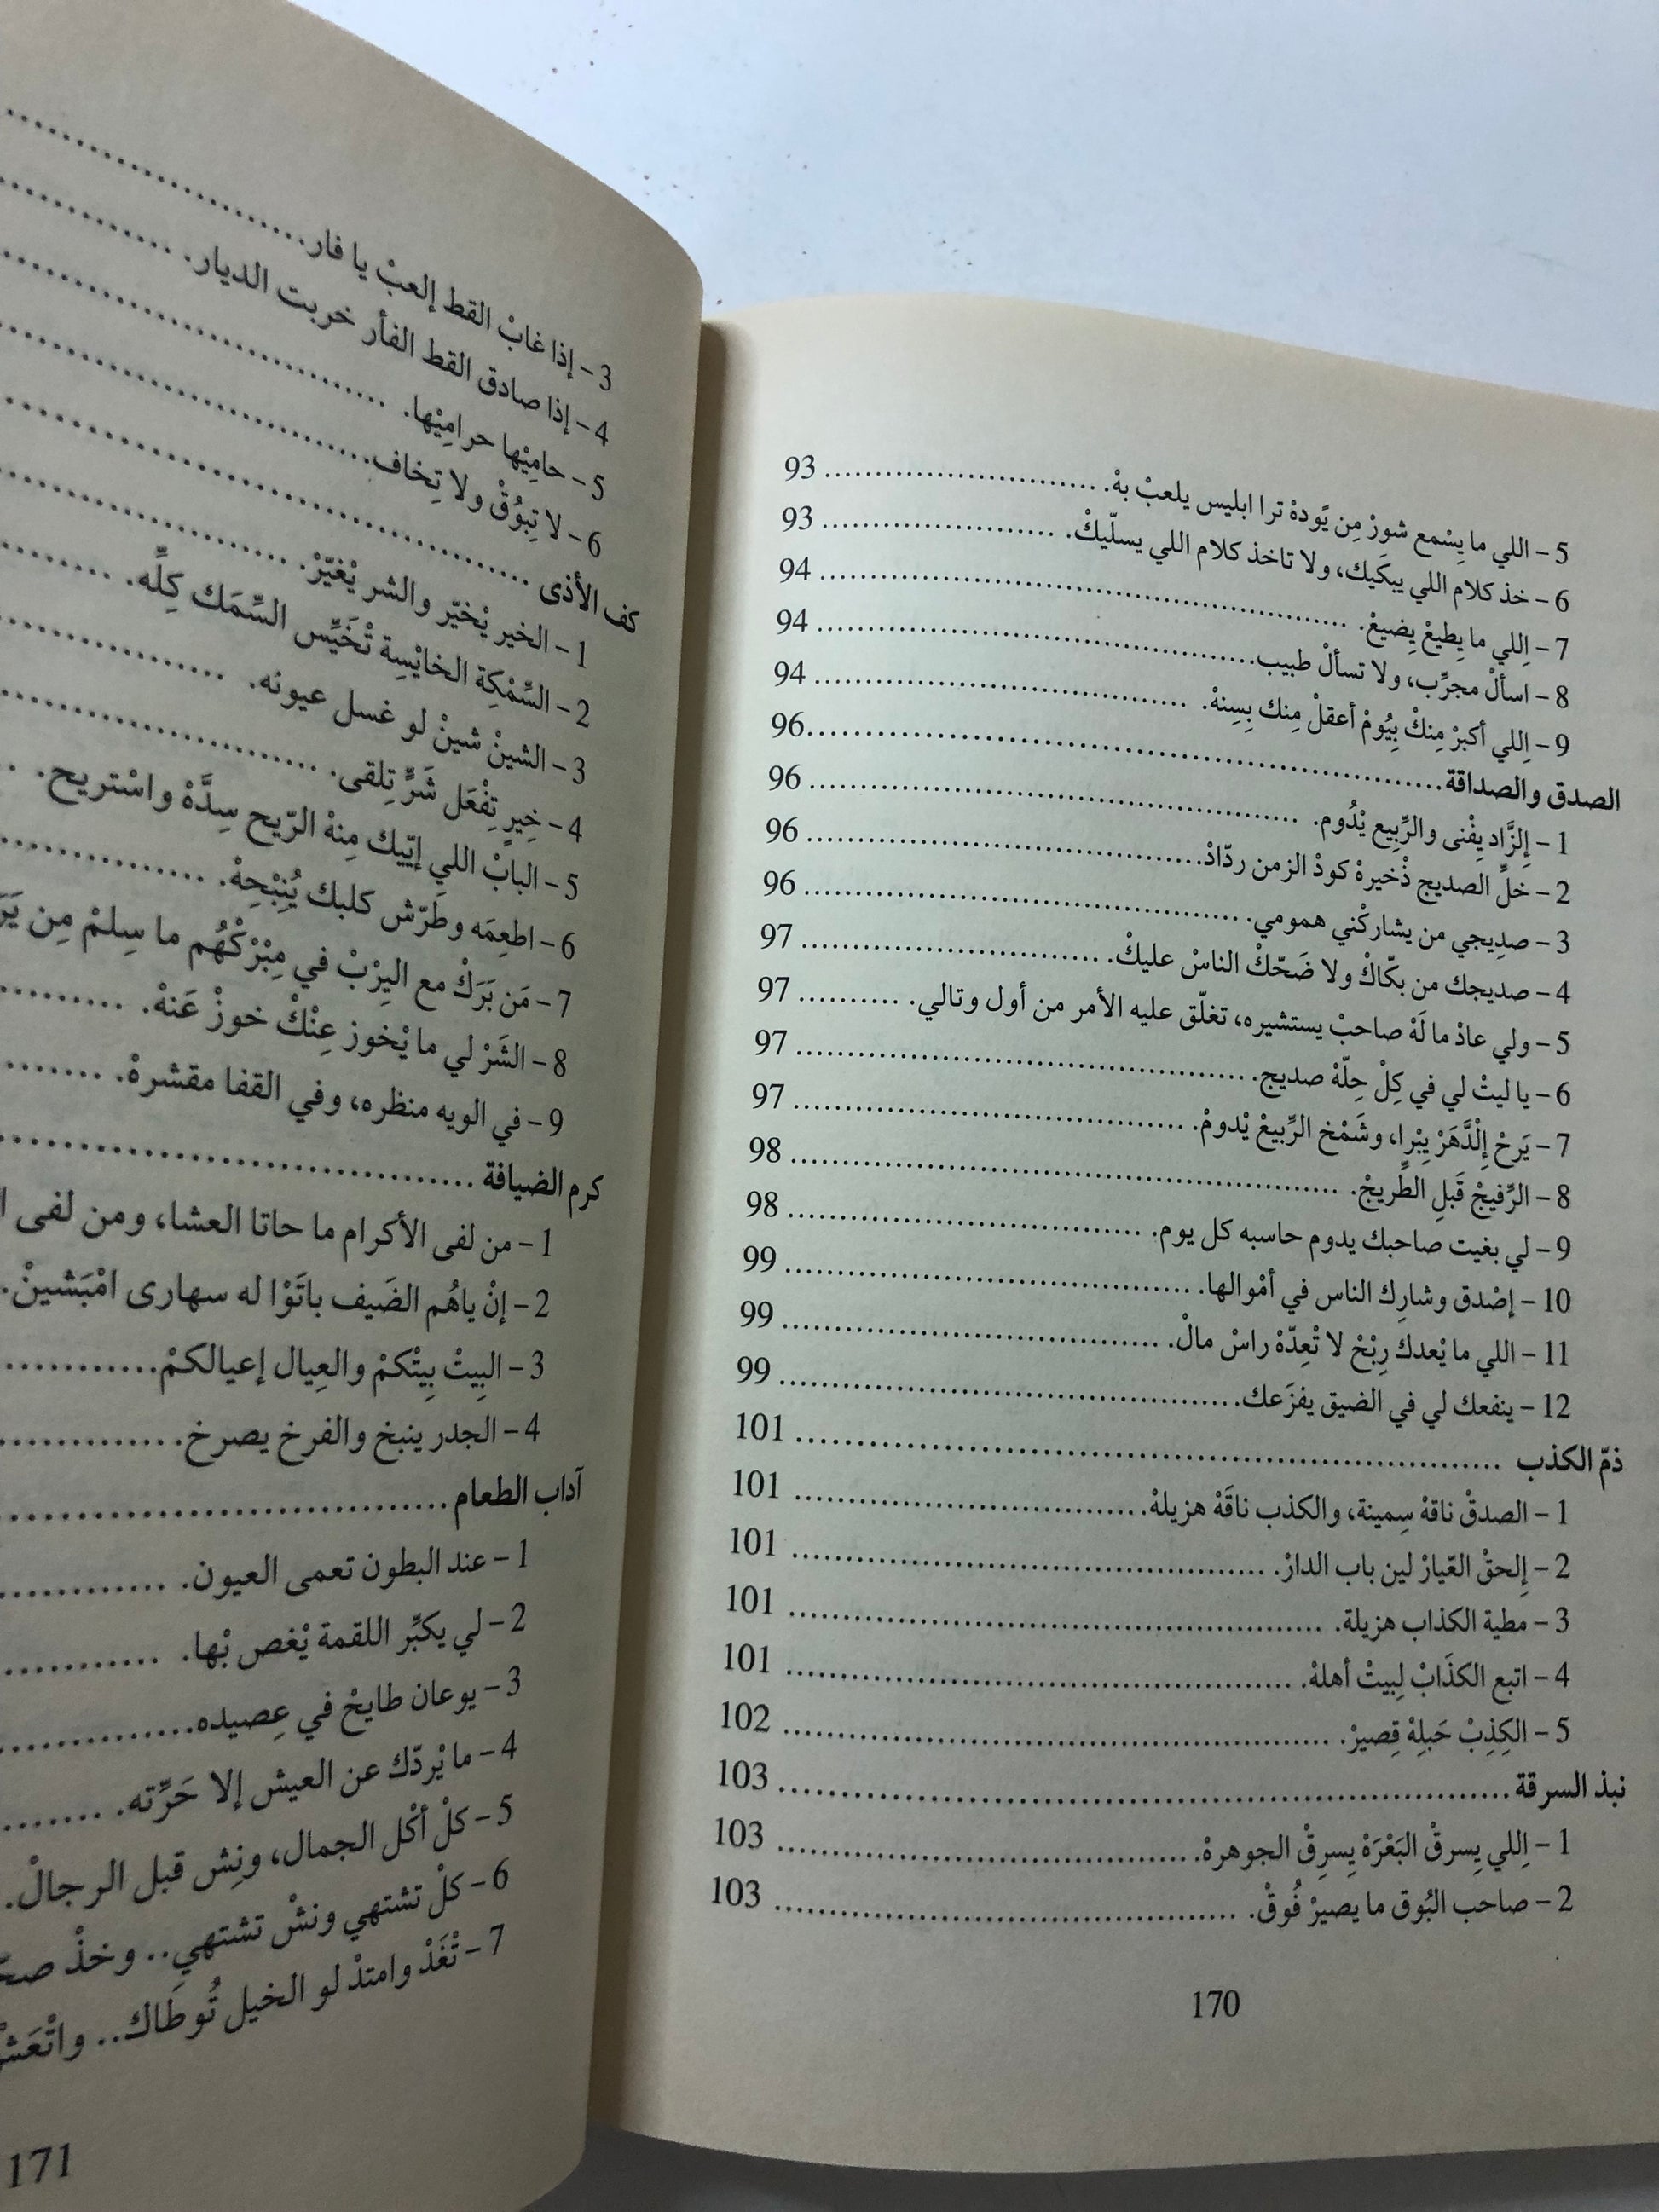 5 – اللي ما يِسْمع شورْ مِن يًودهْ ترا ابليس يلعبْ بهْ. 93
6 – خذ كلام اللي يبكَيك، ولا تاخذ كلام اللي يسلّيكْ. 93
7 – اِللي ما يِطيعْ يِضيعْ. 94
8 – اسألْ مجرِّب، ولا تسألْ طبيب. 94
9 – اِللي أكبرْ مِنكْ بِيُومْ أعقلْ مِنك بِسِنهْ. 94
الصدق والصداقة 96
1 – إلزَّاد يِفْنى والرِّبِيع يْدُوم. 96
2 – خلِّ الصديج ذْخيرهْ كودْ الزمن ردّادْ. 96
3 – صدِيجي من يشاركْني همومي. 96
4 – صديجك من بكّاكْ ولا ضَحّكْ الناسْ عليكْ. 97
5 – ولي عاذْ ما لَهْ صاحبْ يستشيره، تغلّق عليه الأمر من أول وتالي. 97
6 – يا ليتْ لي في كِلْ حِلّهْ صديج. 97
7 – يَرحْ إلْدَّهَرْ يِبْرا، وشَمْخ الرِّبيعْ يْدومْ. 97
8 – الرِّفيجْ قَبلِ الطِّريجْ. 98
9 – لي بغيت صاحبك يدوم حاسبه كل يوم. 98
10 – إصْدق وشارِك الناس في أمْوالها. 99
11 – اللي ما يْعدك رِبْحْ لا تْعِدّهْ راسْ مالْ. 99
12 – ينفعك لي في الضيق يفزَعك. 99
ذمّ الكذب 101
1 – الصدقْ ناقهْ سِمينة، والكذب ناقَهْ هزيلهْ. 101
2 – إلحقْ العّيارْ لين باب الدارْ. 101
3 – مطية الكذاب هزيلة. 101
4 – اتبع الكذَابْ لِبيتْ أهلهْ. 101
5 – الكِذِبْ حَبلِهْ قِصيرْ. 102
نبذ السرقة 103
1 – اِللي يِسرقْ البَعْرَهْ يِسرِقْ الجوهرهْ. 103
2 – صاحب البُوق ما يصيرْ فُوقْ. 103
170
3 – إذا غابْ القط إلعبْ يا فار
4 – إذا صادق القط الفأر خربت الديار.
5 – حامِيْها حرامِيْها.
6 – لا تِبوُقْ ولا تِخاف
كف الأذى
1 – الخير يْخيّر والشر يْغيّرْ.
2 – السِّمْكِة الخايْسِة تْخَيِّس السِّمَك كِلِّه.
3 – الشينْ شينْ لو غسل عيونه.
4 – خِيرٍ تِفْعَل شَرٍّ تِلقى.
5 – البابْ اللي إتّيك مِنهْ الرّيح سِدَّهْ واسْتريح.
6 – اطعِمَه وطَرّش كلبك يُنِبْحِهْ.
7 – مَن بَرَكْ مع اليِرْبْ في مِبْرَكْهُم ما سِلمْ مِن
8 – الشَرْ لي ما يْخوز عِنْكْ خوزْ عَنهْ.
9 – في الويه منظره، وفي القفا مقشرهْ.
كرم الضيافة
1 – من لفى الأكرام ما حاتا العشا، ومن لفى
2 – إنْ ياهُم الضَيف باتَوْا له سهارى امْبَشينْ.
3 – البِيتْ بِيتْكمْ والعِيال إعيالكمْ.
4 – الجدر ينبخ والفرخ يصرخ.
آداب الطعام
1 – عند البطون تعمى العيون.
2 – لي يكبِّر اللقمة يْغص بْها.
3 – يوعان طايحْ في عِصيده
4 – ما يْردّك عن العيش إلا حَرِّته.
5 – كلْ أكْل الجمال، ونِش قبل الرجالْ.
6 – كلْ تشتهي ونشْ تشتهي.. وخذْ
7 – تْغَذْ وامتدْ لو الخيل تُوطَاك..
171